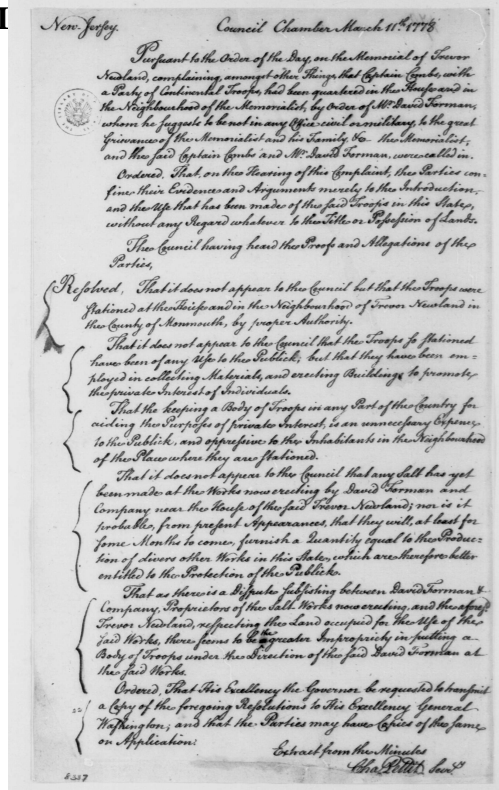 New-Jersey. Council Chamber March 11th. 1778
Pursuant to the Order of the Day, on the Memorial of Trevor
Newland, complaining, amongst other Things that Captain Combs, with
a Party of Continental Troops, had been quartered in the House and in
the Neighbourhood of the Memorialist, by Order of Mr. David Forman,
whom he suggests to be not in any Office civil or military, to the great
Grievance of the Memorialist and his Family, &c the Memorialist,
and the said Captain Combs and Mr. David Forman, were called in.
Ordered, That, on the Hearing of this Complaint, the Parties con-
fine their Evidence and Arguments merely to the Introduction,
and the Use that has been made of the said Troops in this State,
without any Regard whatever to the Title or Possession of Lands.
The Council having heard the Proofs and Allegations of the
Parties,
Resolved, That it does not appear to the Council but that the Troops were
stationed at the House and in the Neighbourhood of Trevor Newland in
the County of Monmouth, by proper Authority.
That it does not appear to the Council that the Troops so stationed
have been of any Use to the Publick; but that they have been em-
ployed in collecting Materials, and erecting Buildings to promote
the private Interest of Individuals.
That the keeping a Body of Troops in any Part of the Country for
aiding the Purposes of private Interest, is an unnecessary Expence
to the Publick, and oppressive to the Inhabitants in the Neighbourhood
of the Place where they are stationed.
That it does not appear to the Council that any Salt has yet
been made at the Works now erecting by David Forman and
Company near the House of the said Trevor Newland; nor is it
probable, from present Appearances, that they will, at least for
some Months to come, furnish a Quantity equal to the Produc-
tion of divers other Works in this State, which are therefore better
entitled to the Protection of the Publick.
That as there is a Dispute subsisting between David Forman &
Company, Proprietors of the Salt Works now erecting, and the aforesd.
Trevor Newland, respecting the Land occupied for the Use of the
said Works, there seems to be the greater Impropriety in putting a
Body of Troops under the Direction of the said David Forman at
the said Works.
Ordered, That His Excellency the Governor be requested to transmit
a Copy of the foregoing Resolutions to His Excellency General
Washington; and that the Parties may have Copies of the same
on Application.
Extract from the Minutes
Cha Pettit Secy.
8337